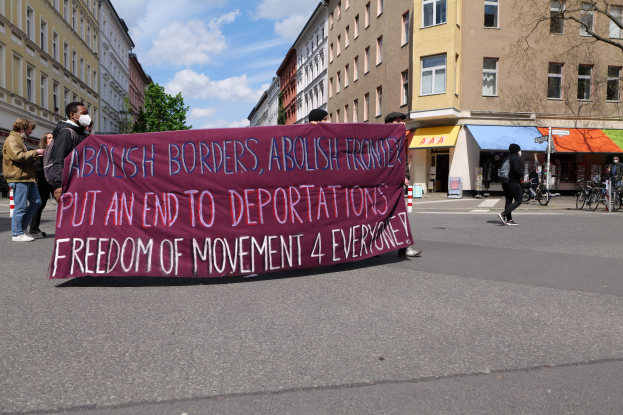 ABOLISH BORDERS, ABOLISH FRONTEX
PUT AN END TO DEPORTATIONS
FREEDOM OF MOVEMENT 4 EVERYONE!
AAA